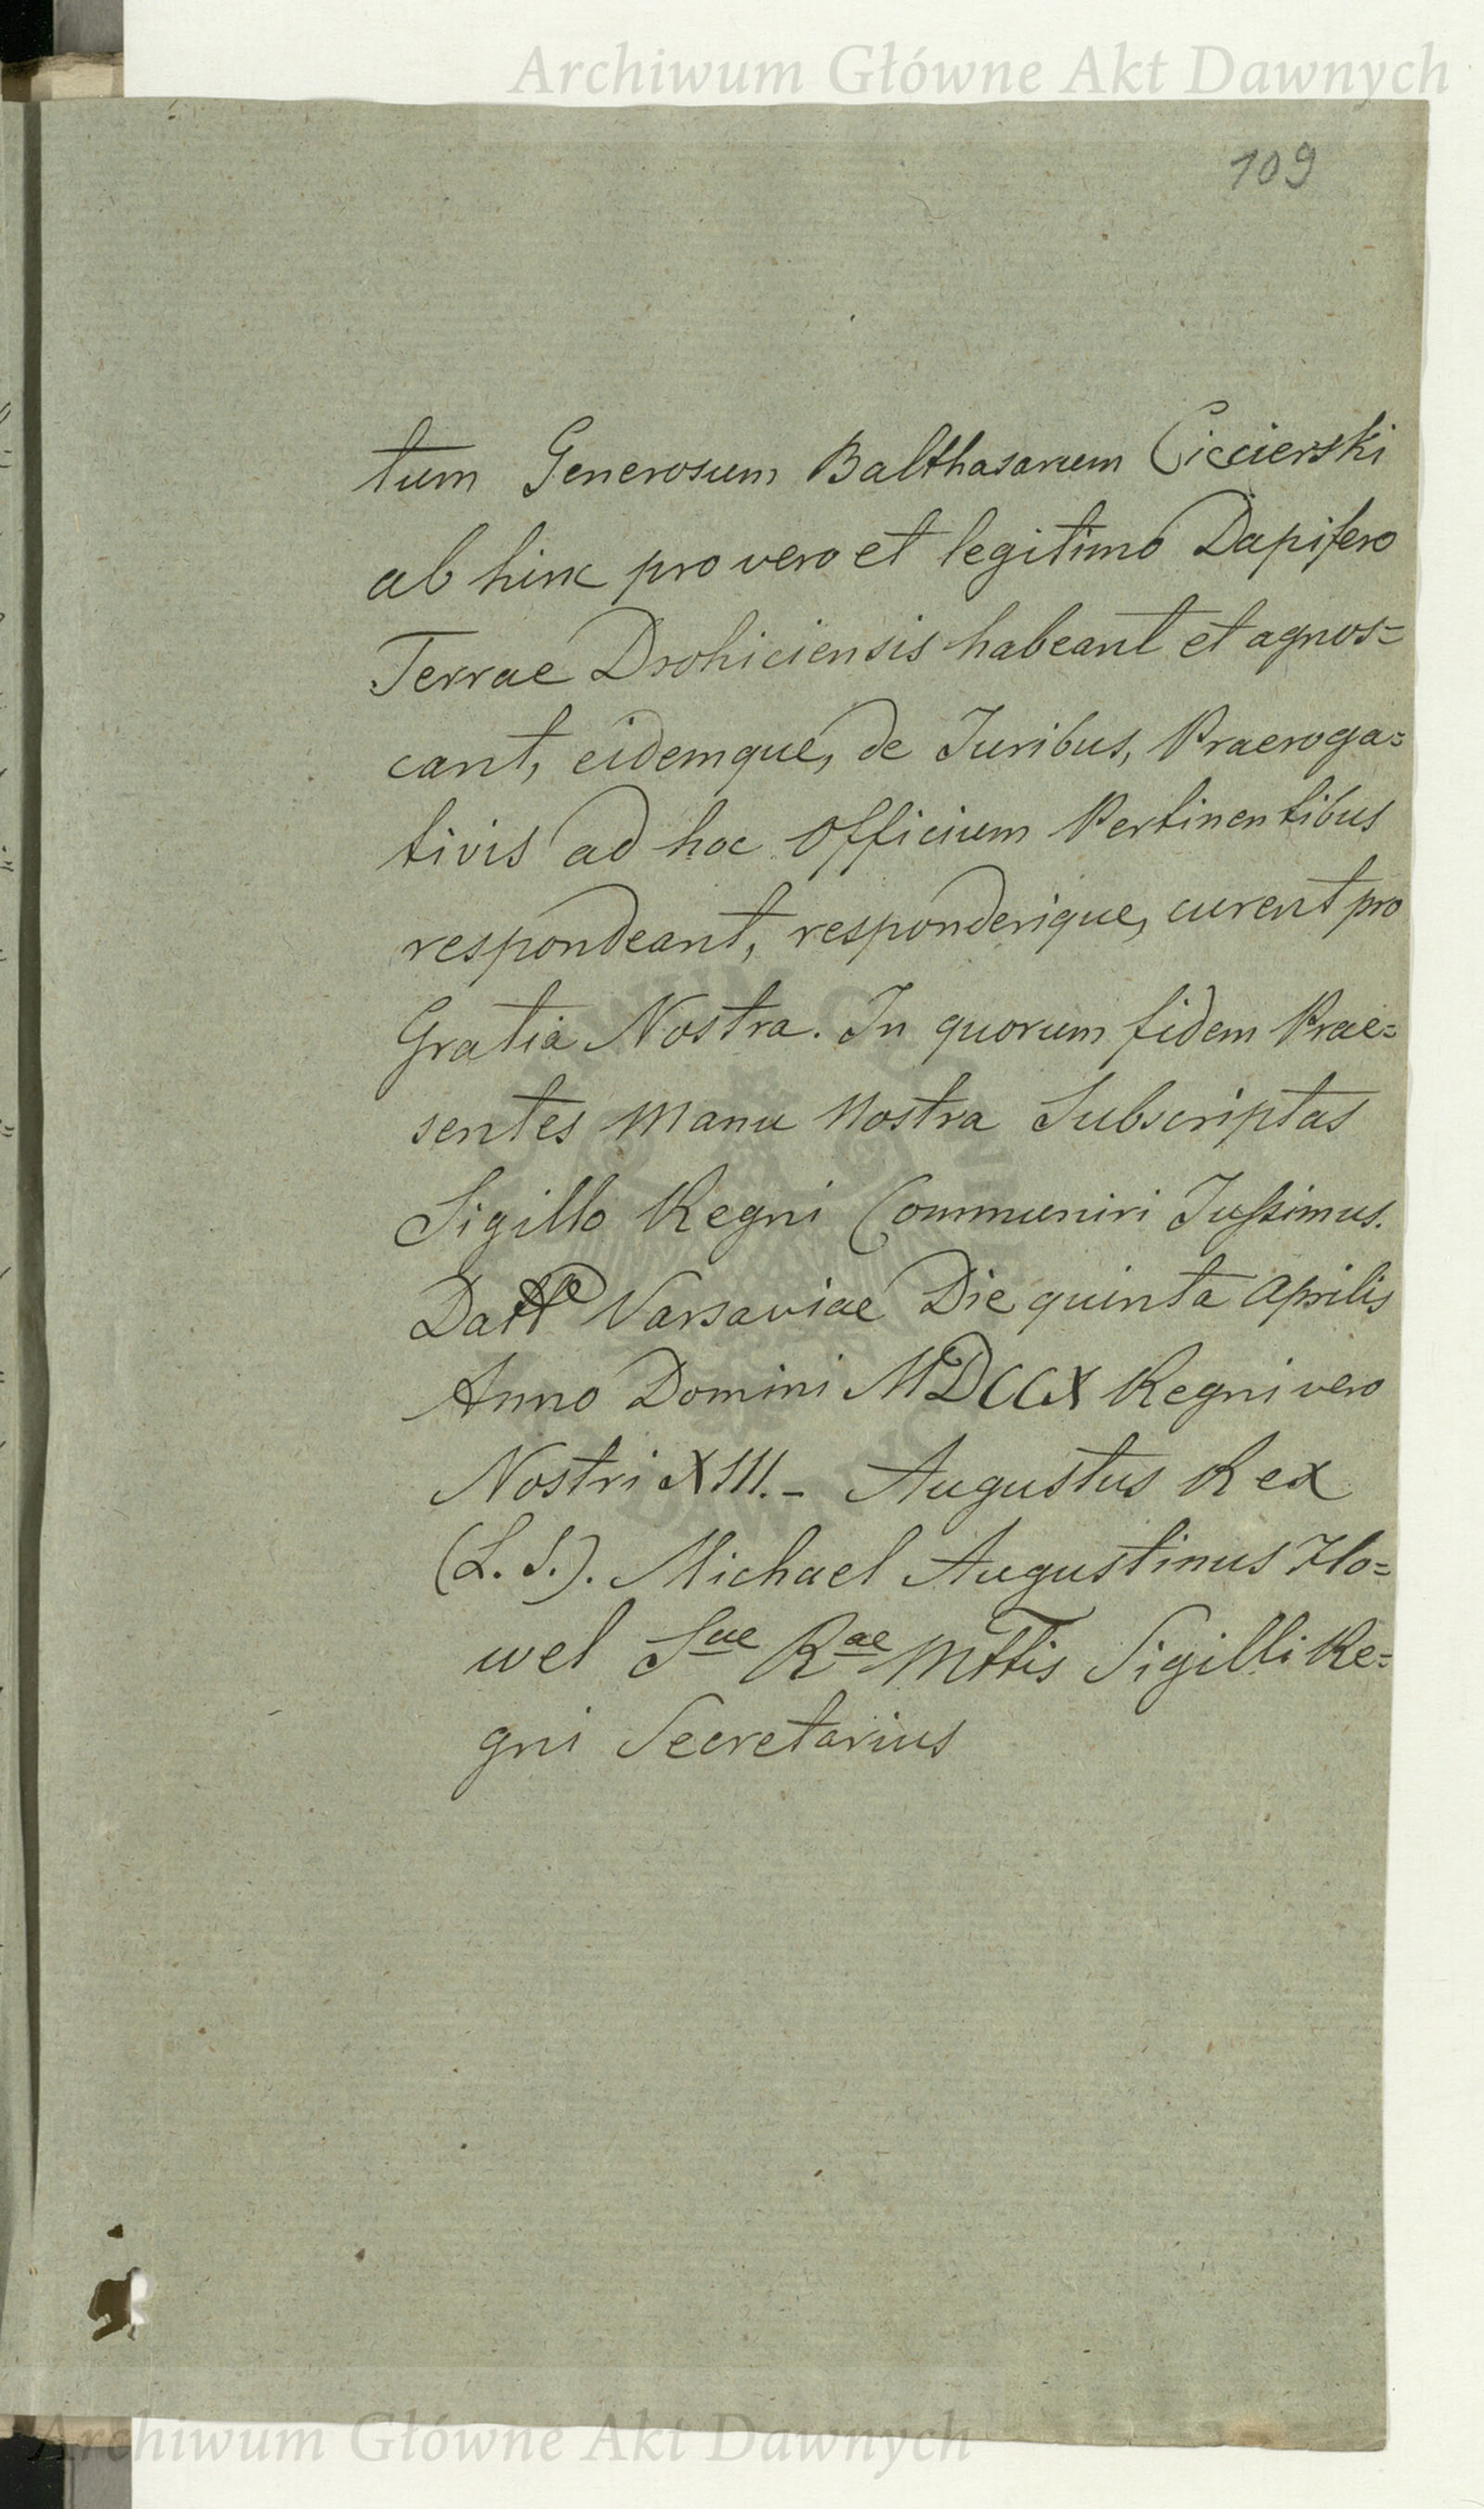 Archiwum Główne Akt Dawnych
109
tum Generosum Balthasarum Ciecierski
ab hinc pro vero et legitimo Dapifero
Terrae Drohiciensis habeant et agnos=
cant, eidemque, de Juribus, Praeroga=
tivis ad hoc Officium Pertinentibus
respondeant, responderique, curent pro
Gratia Nostra. In quorum fidem Prae=
sentes Manu Nostra Subscriptas
Sigillo Regni Communiri Jussimus.
Varsaviae Die quinta Aprilis
Anno Domini MDCCX Regni vero
Nostri XIII. – Augustus Rex
(L. S.). Michael Augustinus Ho=
wel Sae Rae Mttis Sigilli Re=
gni Secretarius
Archiwum Główne Akt Dawnych